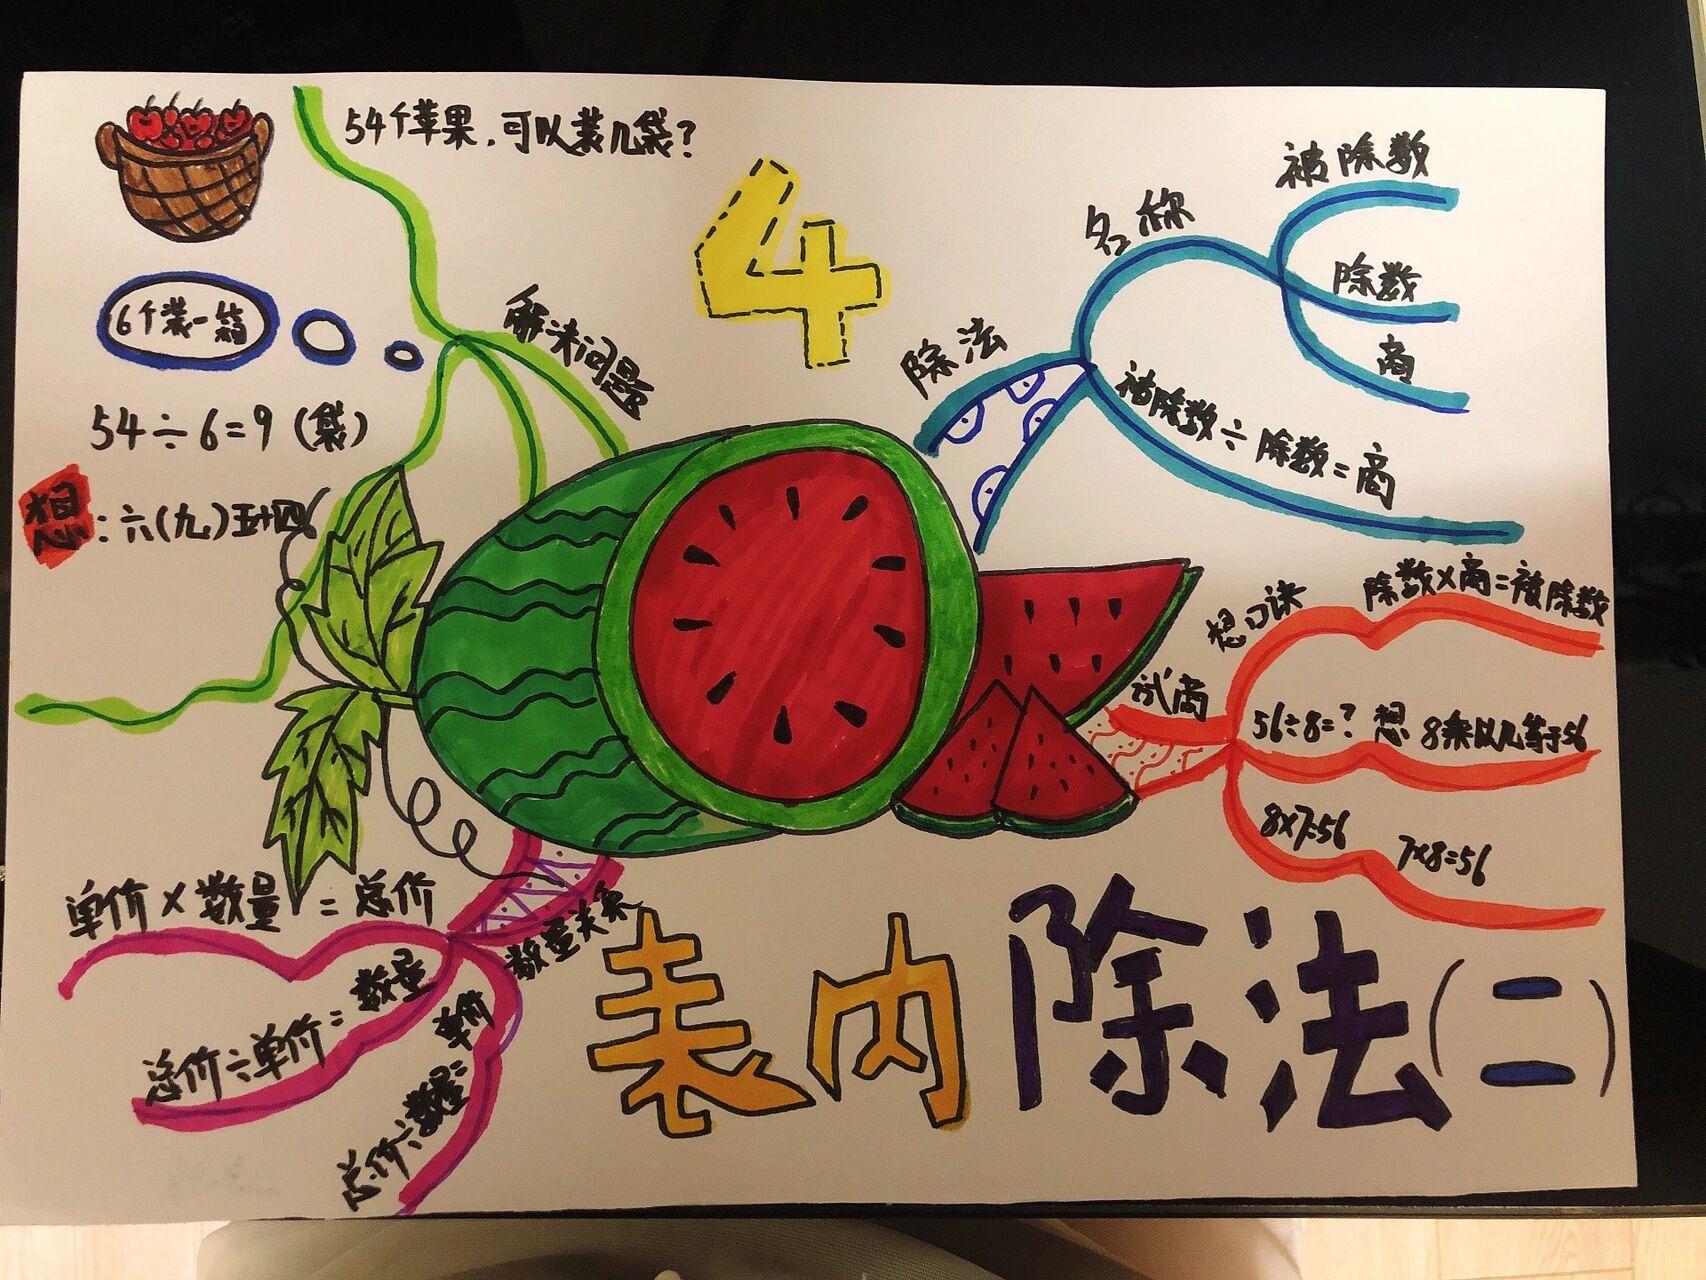 54个苹果,可以装几袋?
6个装一箱
54÷6=9(袋)
想:六(九)五十四
解决问题
4
除法
名称
被除数
除数
商
被除数÷除数=商
试商
想口诀
除数×商=被除数
56÷8=? 想 8乘以几等于56
8×7=56 7×8=56
数量关系
单价×数量=总价
总价÷单价=数量
总价÷数量=单价
表内除法(二)